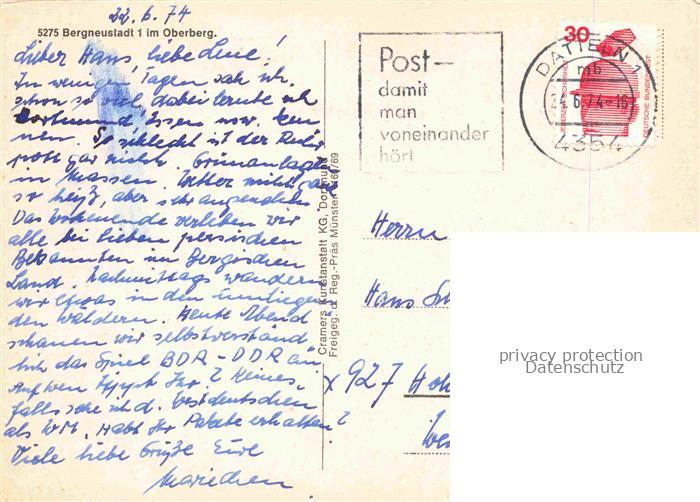 22.6.74
5275 Bergneustadt 1 im Oberberg.
Lieber Hans, liebe Lene!
In wenigen Tagen sah ich
schon so viel, dabei lernte ich
Dortmund, Essen usw. ken
nen. So schlecht ist der Ruhr
pott gar nicht. Grünanlagen
in Massen. Wetter nicht ganz
so heiß, aber sehr angenehm.
Das Wochenende verleben wir
alle bei lieben persischen
Bekannten im Bergischen
Land. Nachmittags wandern
wir etwas in den umliegen
den Wäldern. Heute Abend
schauen wir selbstverständ
lich das Spiel BDR-DDR an
Auf wen tippt Ihr? Keines
falls sehe ich d. Westdeutschen
als WM. Habt Ihr Pakete erhalten?
Viele liebe Grüße Eure
Mariechen
Cramers Kunstanstalt KG. Dortmund
Freigeg. d. Reg.-Präs Münster
Post-
damit
man
voneinander
hört
30
JEDERZEIT SICHERHEIT
DEUTSCHE BUNDESPOST
DATTELN 1
mb
24.6.74-16
4354
Herrn
Hans
x 927
privacy protection
Datenschutz